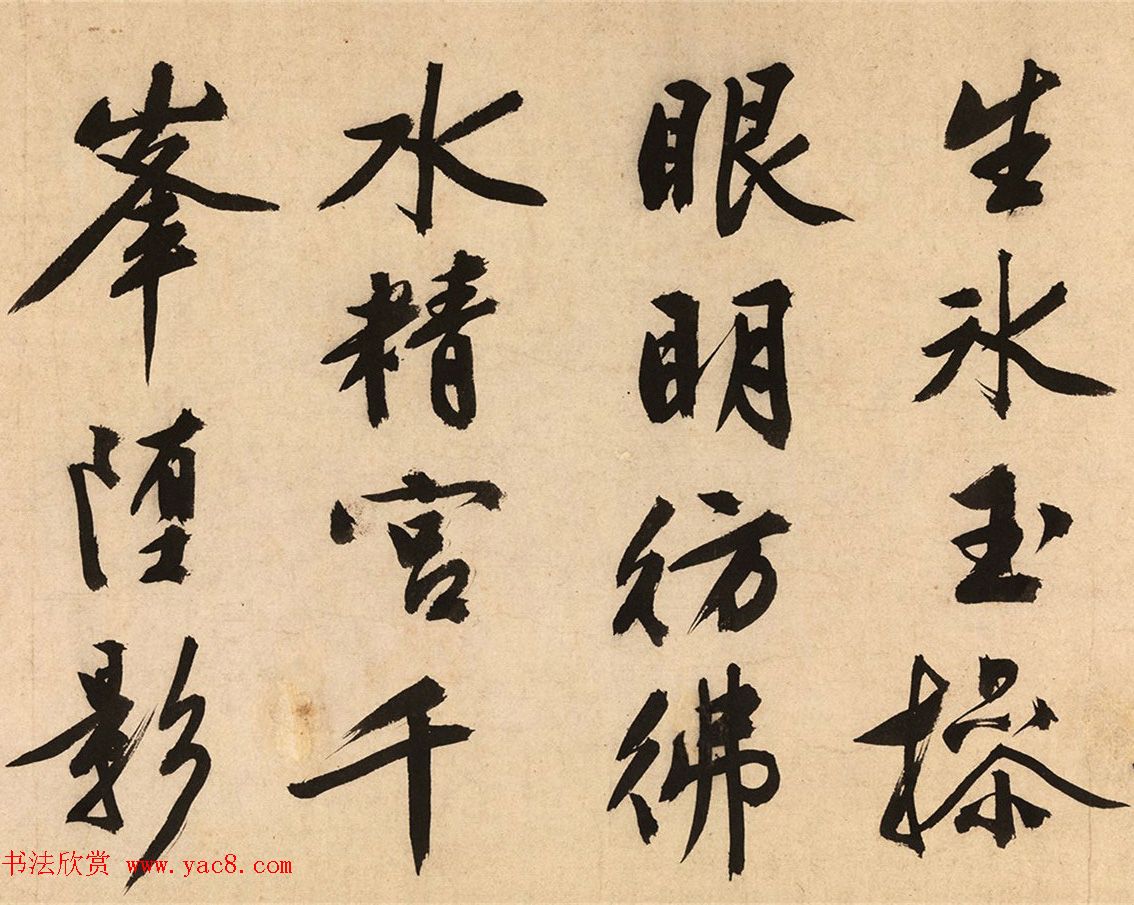 生氷玉操
眼明彷彿
水精宮千
峯堕影
书法欣赏 www.yac8.com